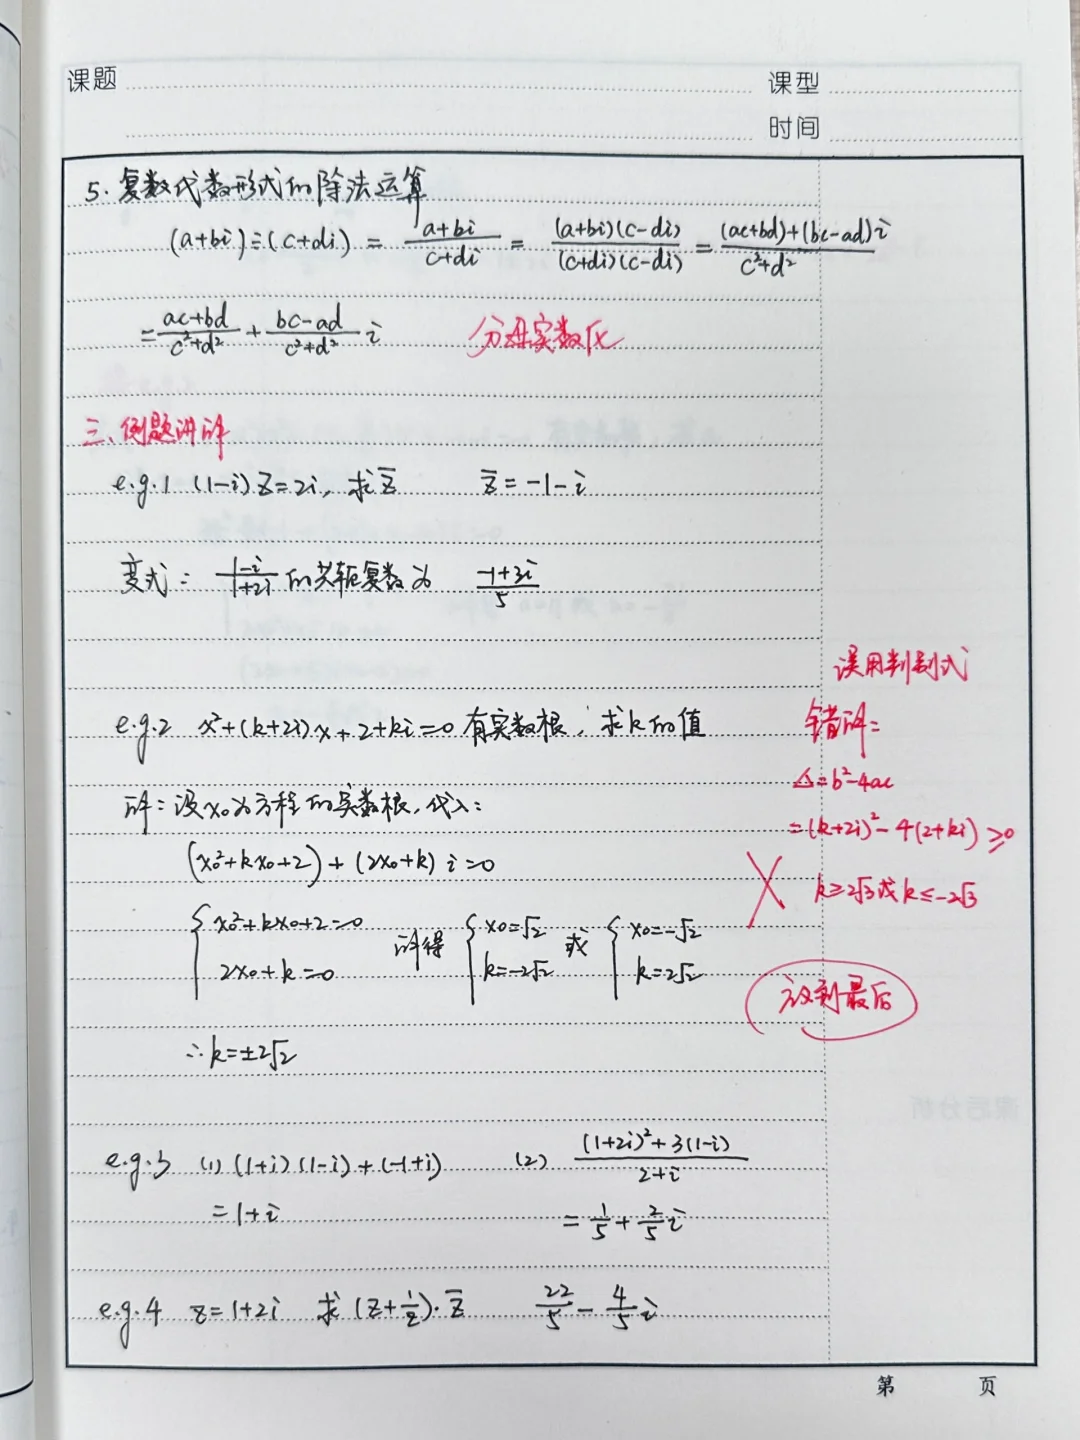 课题 课型
时间
5. 复数代数形式的除法运算
(a+bi)÷(c+di) = \frac{a+bi}{c+di} = \frac{(a+bi)(c-di)}{(c+di)(c-di)} = \frac{(ac+bd)+(bc-ad)i}{c²+d²}
= \frac{ac+bd}{c²+d²} + \frac{bc-ad}{c²+d²} i 分母实数化
三、例题讲解
e.g.1 (1-i)z=2i, 求z̄ z̄=-1-i
变式: \frac{1-i}{1+2i}的共轭复数为 \frac{-1+3i}{5}
误用判别式
e.g.2 x²+(k+2i)x+2+ki=0有实数根, 求k的值
错解:
△=b²-4ac
解:设x₀为方程的实数根,代入:
=(k+2i)²-4(2+ki)≥0
(x₀²+kx₀+2)+(2x₀+k)i=0
k≥2√3或k≤-2√3
{x₀²+kx₀+2=0 解得 {x₀=√2 或 {x₀=-√2
2x₀+k=0 k=-2√2 k=2√2
放到最后
∴k=±2√2
e.g.3 (1)(1+i)(1-i)+(-1+i) (2) \frac{(1+2i)²+3(1-i)}{2+i}
=1+i =\frac{1}{5}+\frac{2}{5}i
e.g.4 z=1+2i 求(z+\frac{1}{z})·z̄ \frac{22}{5}-\frac{4}{5}i
第 页